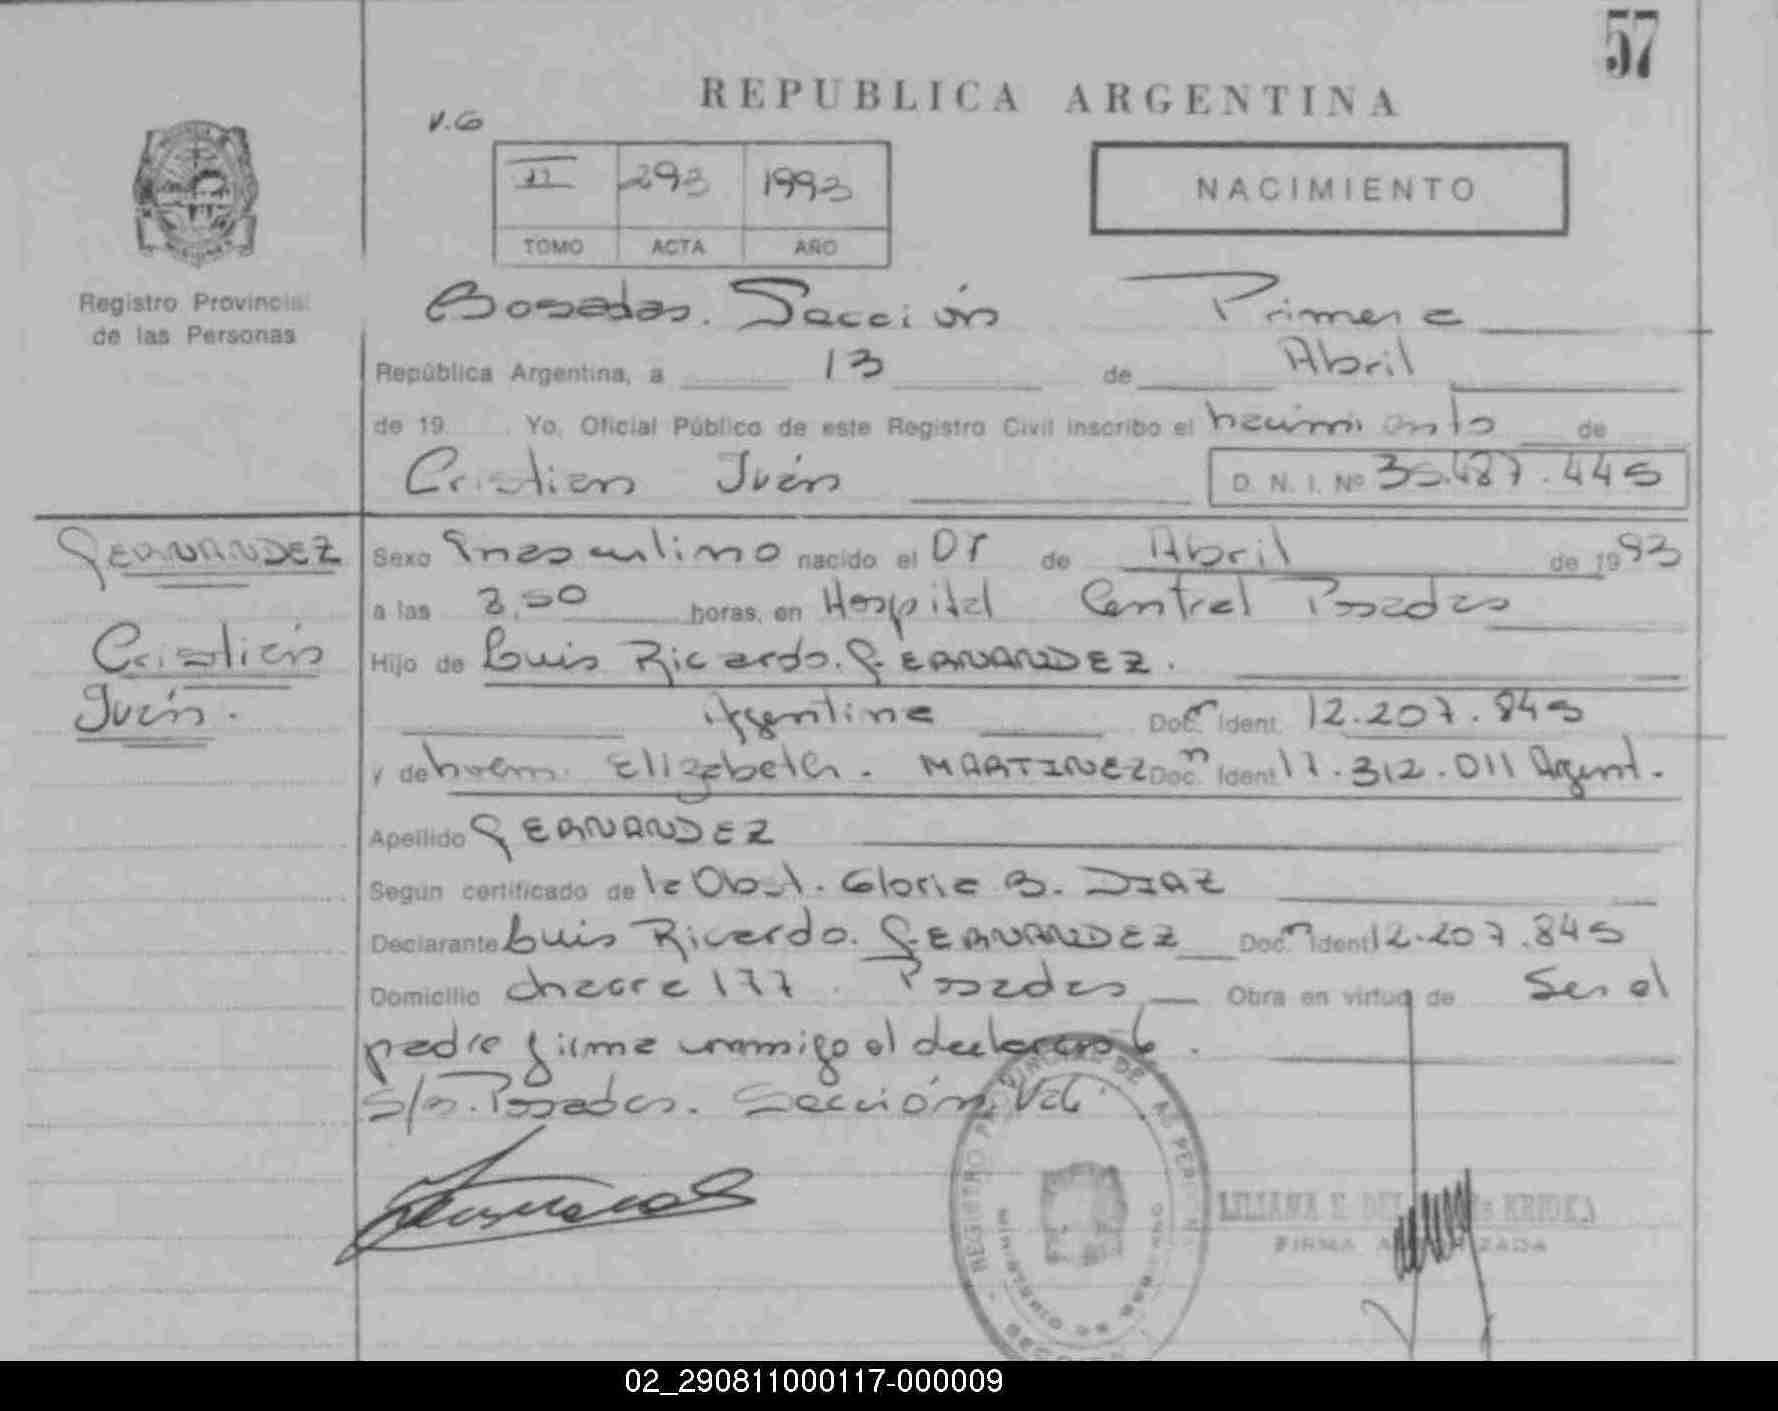 57
REPUBLICA ARGENTINA
V.G
II 293 1993
TOMO ACTA AÑO
NACIMIENTO
Registro Provincial
de las Personas
Posadas. Sección Primera
República Argentina, a 13 de Abril
de 19 Yo, Oficial Público de este Registro Civil inscribo el nacimiento de
Cristian Iván D. N. I. Nº 35.487.445
FERNANDEZ
Cristián
Iván.
Sexo masculino nacido el 07 de Abril de 1993
a las 8,50 horas, en Hospital Central Posadas
Hijo de Luis Ricardo. FERNANDEZ.
Argentina Doc. Ident. 12.207.845
y de Elizabeth. MARTINEZ Doc. Ident 17.312.011 Argent.
Apellido FERNANDEZ
Según certificado de la Obst. Gloria B. DIAZ
Declarante Luis Ricardo. FERNANDEZ Doc. Ident 12.207.845
Domicilio chacra 177. Posadas Obra en virtud de Ser el
padre firma conmigo el declarante.
S/R. Posadas. Sección Vale
LILIANA E. DEL KRIDKA
FIRMA AUTORIZADA
02_290811000117-000009